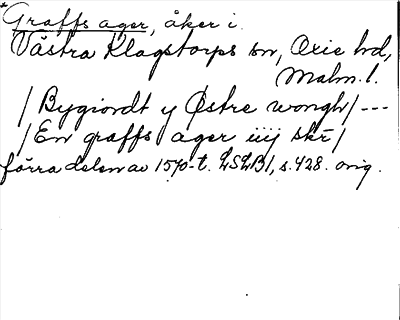 *Graffs ager, åker i.
Västra Klagstorps sn, Oxie hd,
Malm. l.
/Bygiordt y Østre wongh/---
/En graffs ager iiij skr/
förra delen av 1570-t. LSLB1, s. 428. orig.